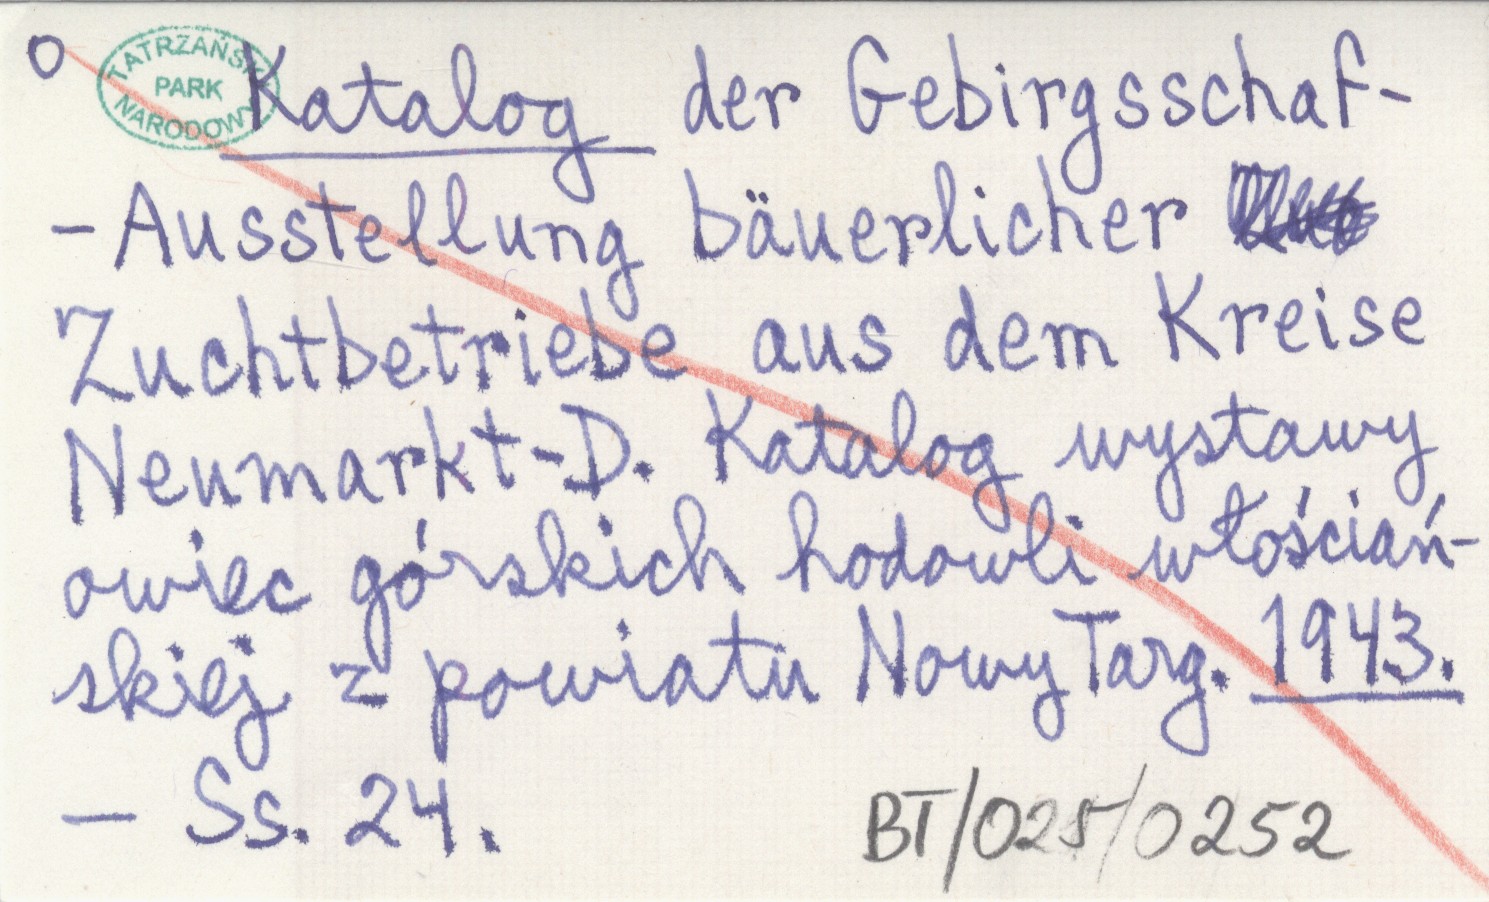 o
TATRZAŃSKI
PARK
NARODOWY
Katalog der Gebirgsschaf-
-Ausstellung bäuerlicher
Zuchtbetriebe aus dem Kreise
Neumarkt-D. Katalog wystawy
owiec górskich hodowli włościań-
skiej z powiatu Nowy Targ. 1943.
— Ss. 24.
BT/025/0252